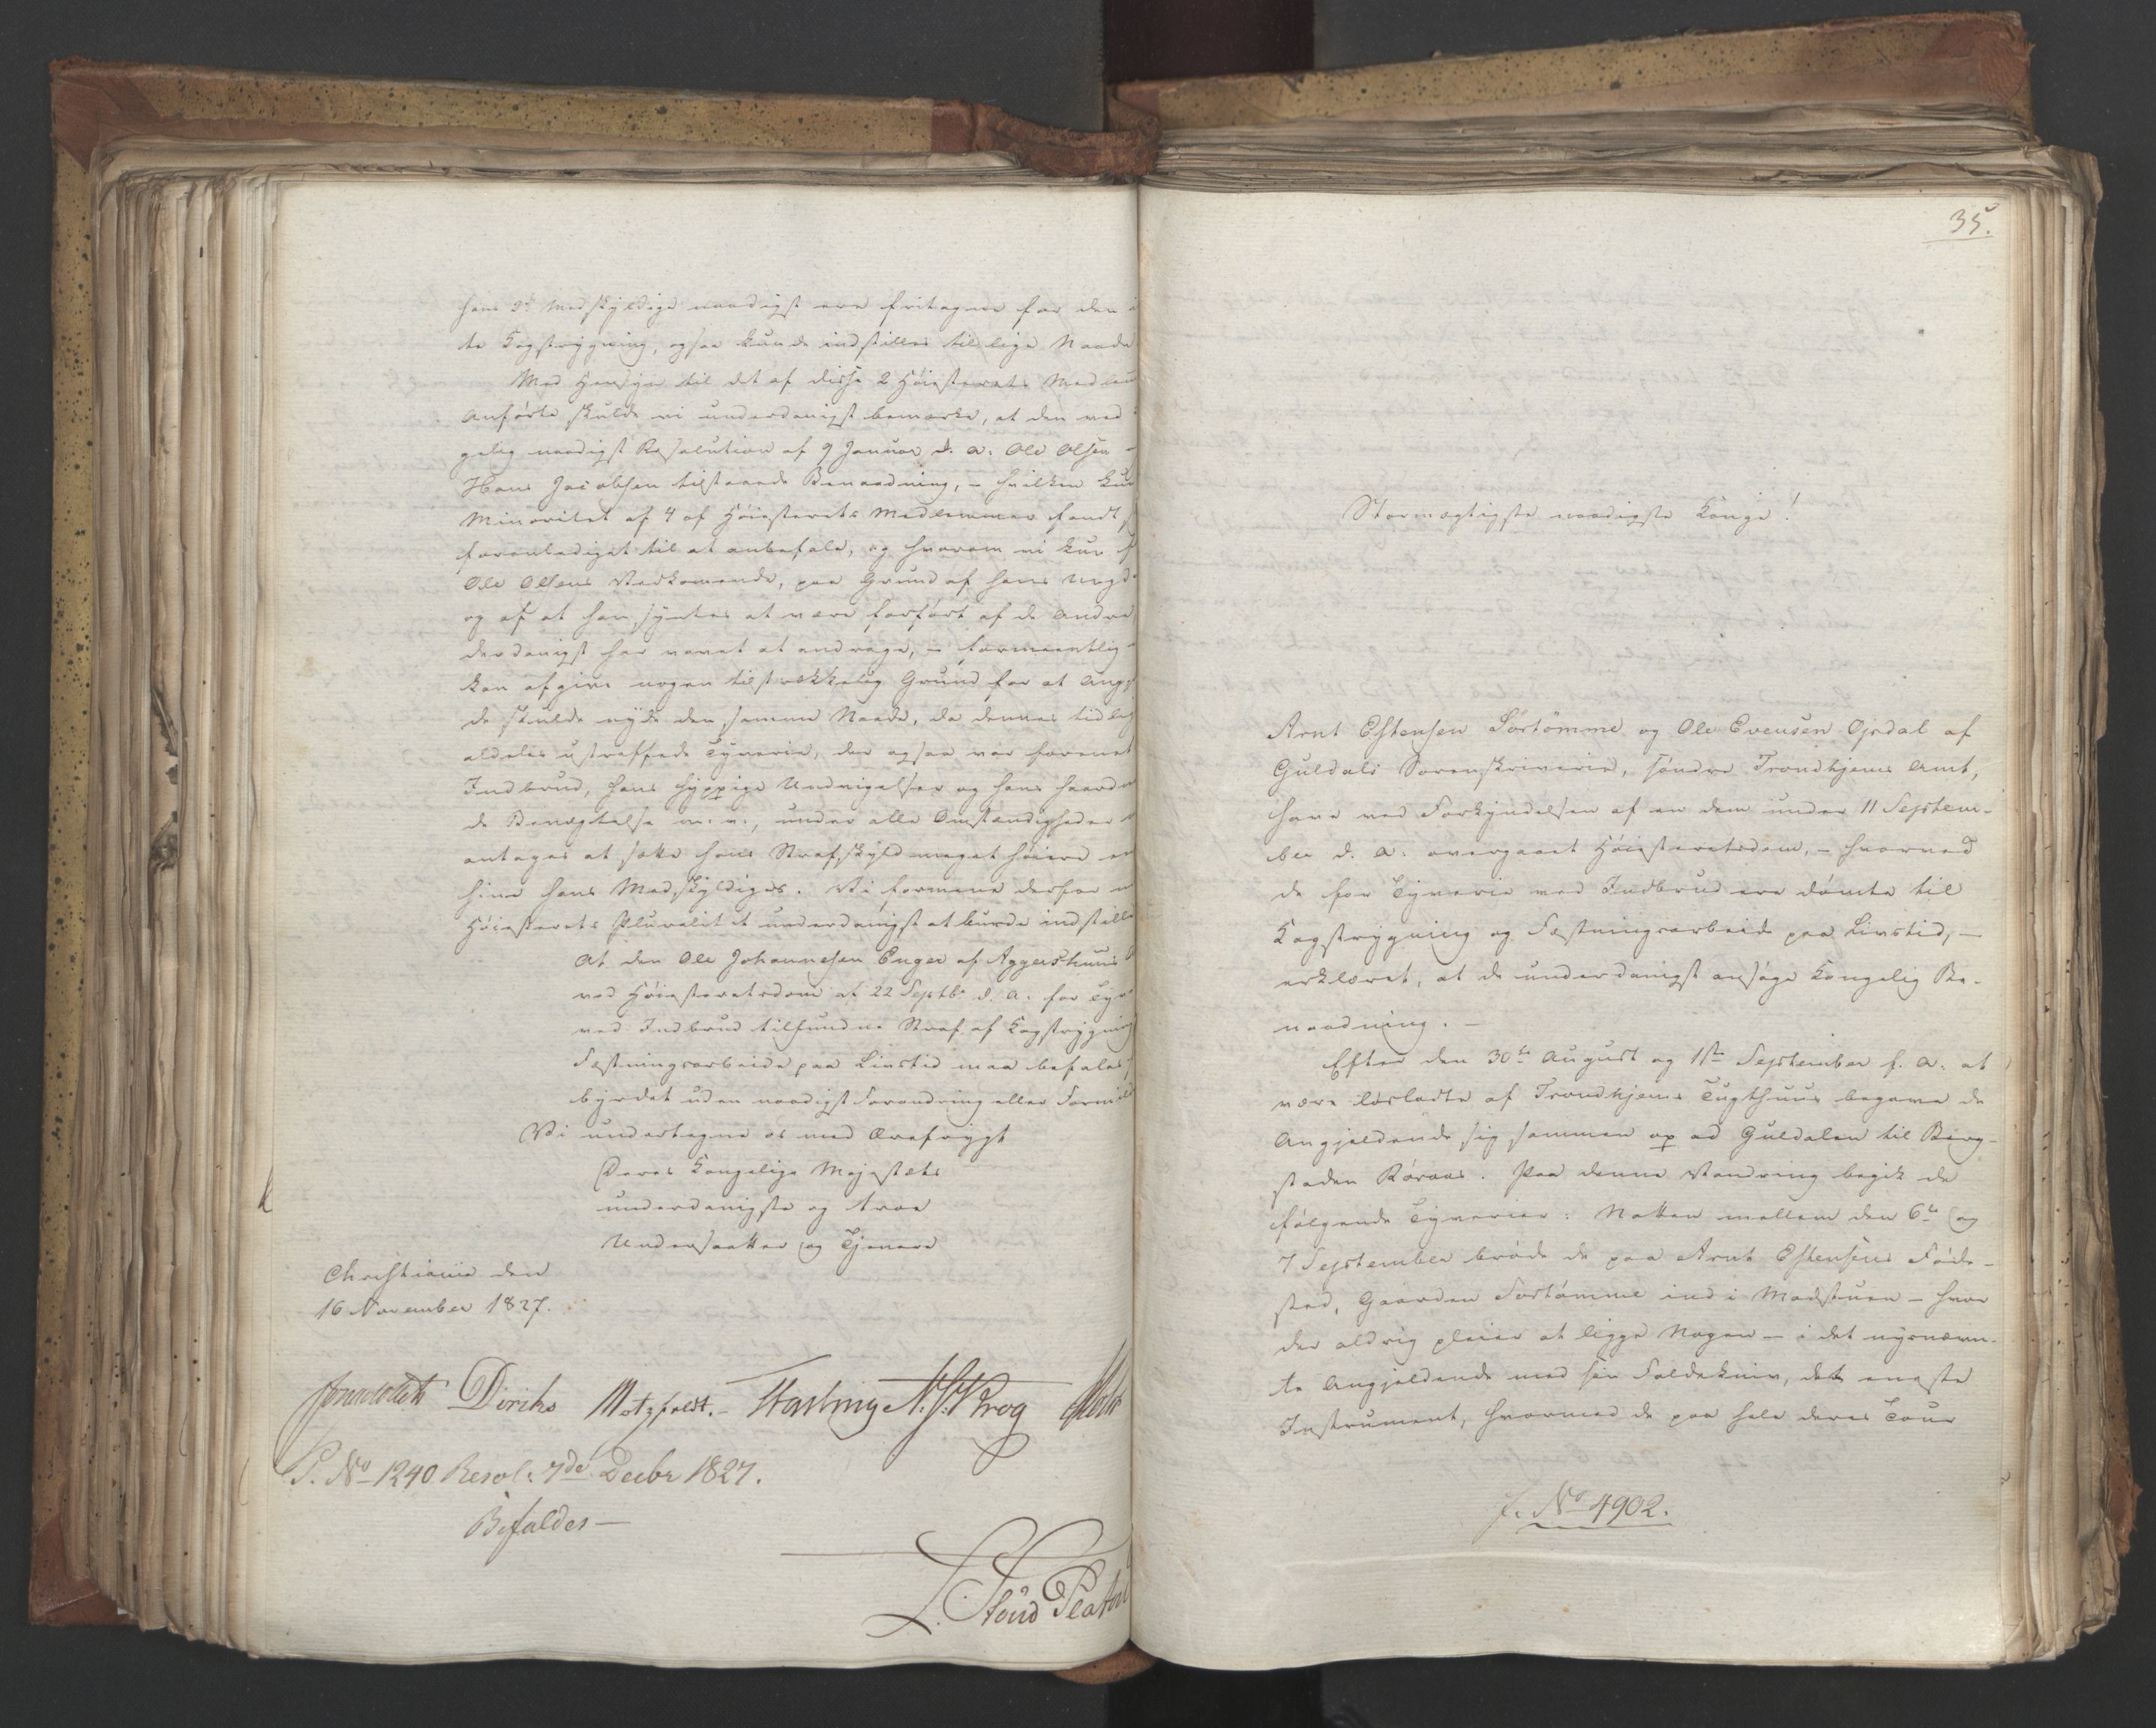 hans 2de Medskyldige naadigst ere fritagne for den
te Kagstrygning, ogsaa kunde indstilles til lige Naade
Med Hensyn til det af disse 2 Høiesterets Medlem
Anførte skulde vi underdanigst bemærke, at den ved
gelig naadigst Resolution af 9 Januar d. A. Ole Olsen
Hans Jacobsen tilstaaede Benaadning, – hvilken kun
Minoritet af 4 af Høiesterets Medlemmer fandt
foranlediget til at anbefale, og hvorom vi kun
Ole Olsens Vedkomende, paa Grund af hans Ungd
og af at han syntes at være forført af de Andre
derdanigst har vovet at andrage, – formeentlig
kan afgive nogen tilstrækkelig Grund for at Angj
de skulde nyde den samme Naade, da dennes tidlig
aldeles ustraffede Tyverie, der ogsaa var forenet
Indbrud, hans hyppige Undvigelser og hans haard
de Benægtelse m. v., under alle Omstændigheder
antages at sætte hans Strafskyld meget høiere en
hine hans Medskyldiges. Vi formene derfor
Høiesterets Pluralitet underdanigst at burde indstille
At den Ole Johannesen Enger af Aggershuus
ved Høiesteretsdom af 22 Septbr d. A. for Tyv
ved Indbrud tilfundne Straf af Kagstrygning
Fæstningsarbeide paa Livstid maa befales
byrdet uden naadigst Forandring eller Formild
Vi undertegne os med Ærefrygt
Deres Kongelige Majestæts
underdanigste og troe
Undersaatter og Tjenere
Christiania den
16 November 1827.
Diriks Motzfeldt. N. J. Krog
S. No 1240 Resol: 7de Decbr 1827.
Bifaldes –
35.
Stormægtigste naadigste Konge!
Arnt Estensen Sørtømme og Ole Evensen Opdal af
Guldals Sorenskriverie, søndre Trondhjems Amt,
have ved Forkyndelsen af en dem under 11 Septem-
ber d. A. overgaaet Høiesteretsdom, – hvorved
de for Tyverie ved Indbrud ere dømte til
Kagstrygning og Fæstningsarbeide paa Livstid, –
erklæret, at de underdanigst ansøge Kongelig Be-
naadning. –
Efter den 30te August og 1ste September f. A. at
være løsladte af Trondhjems Tugthuus begave de
Angjeldende sig sammen op ad Guldalen til Berg-
staden Røraas. Paa denne Vandring begik de
følgende Tyverier: Natten mellem den 6te og
7 September brøde de paa Arnt Estensens Føde-
sted, Gaarden Sørtømme ind i Madstuen – hvor
der aldrig pleier at ligge Nogen – i det nysnævn-
te Angjeldende med sin Foldekniv, det eneste
Instrument, hvormed de paa hele deres Tour
J. No 4902.